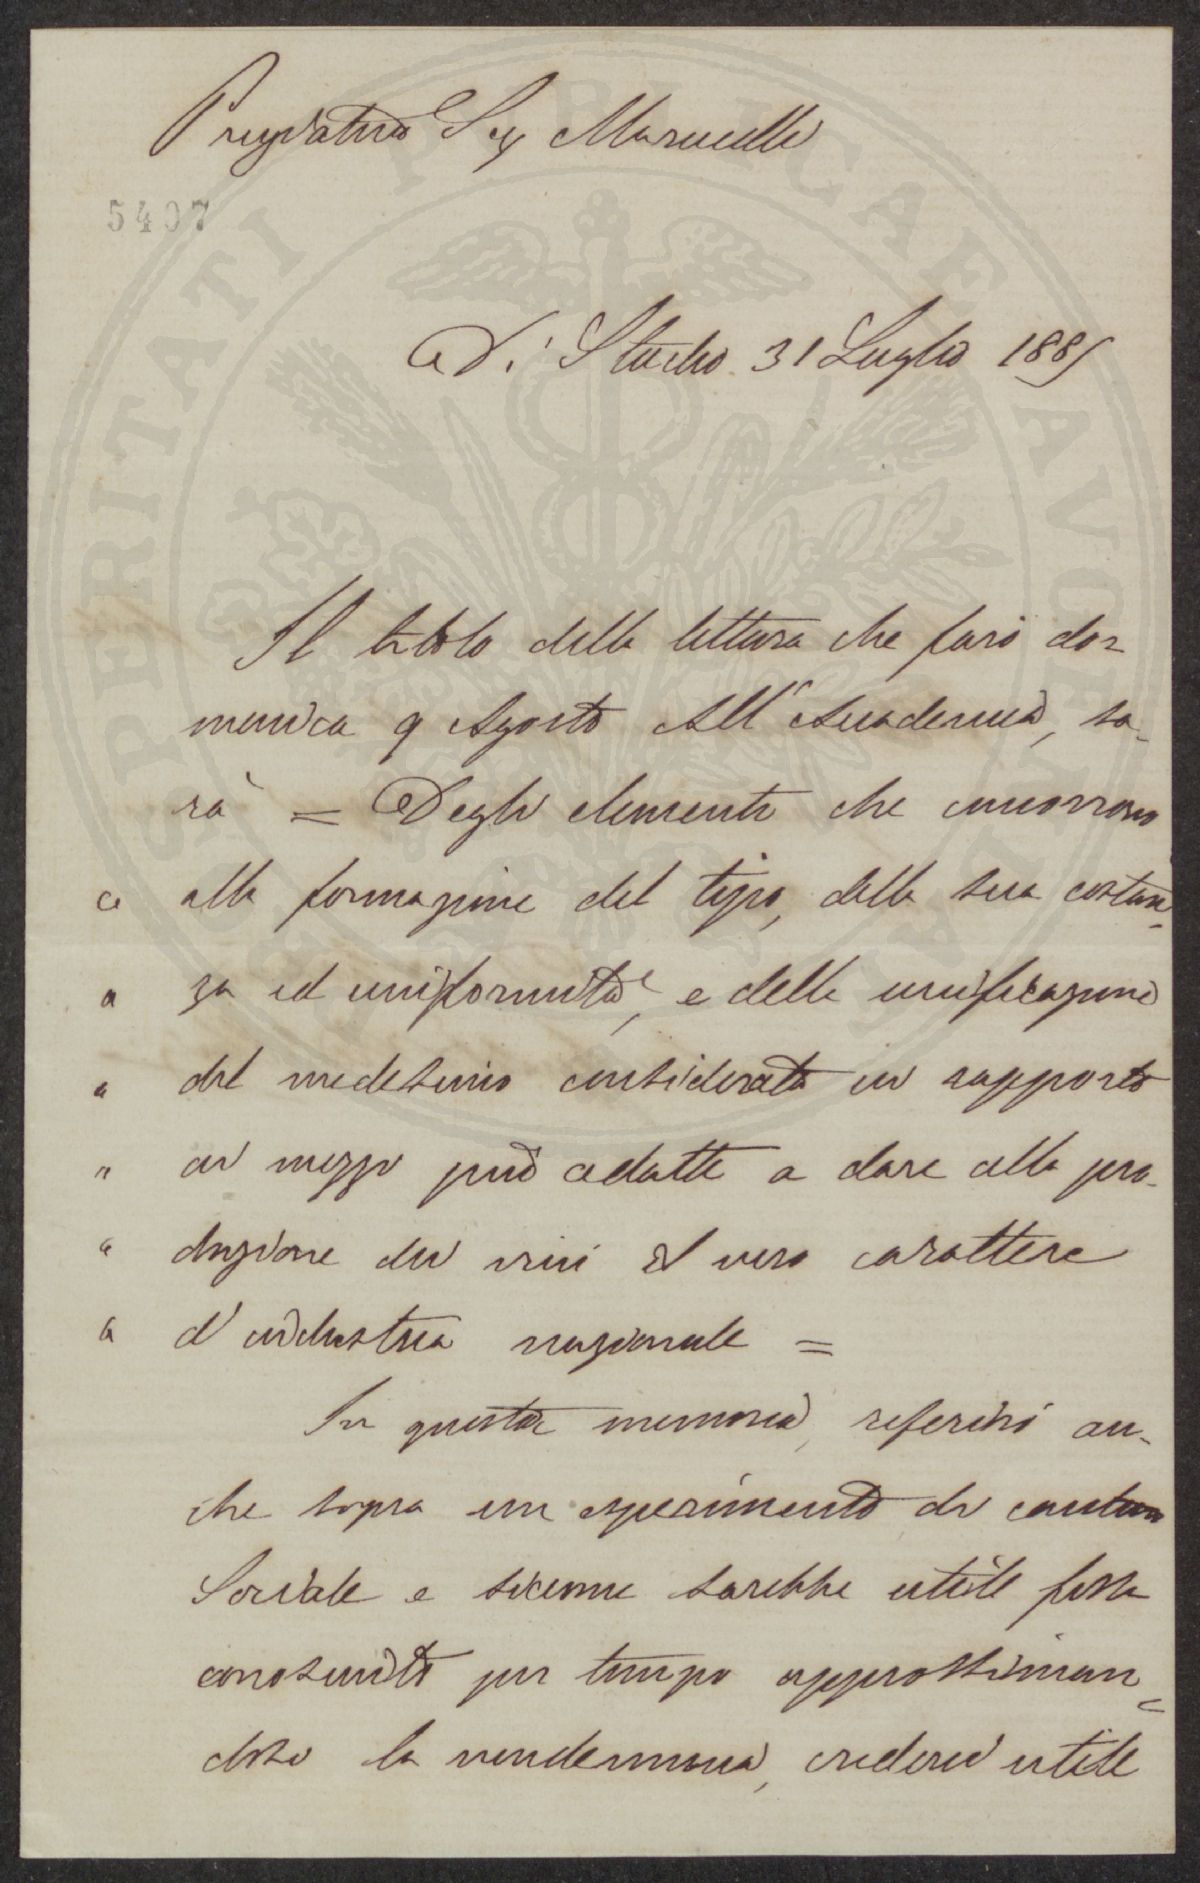 Pregiatmo Sig Marucelli
5407
a Dì Stucho 31 Luglio 1885
Il titolo della lettura che farò do=
menica 9 Agosto All' Accademia, sa-
rà = Degli elementi che concorrono
" alla formazione del tipo, della sua costan-
" za ed uniformità, e della unificazione
" del medesimo considerata in rapporto
" ai mezzi più adatti a dare alla pro-
" duzione dei vini il vero carattere
" d' industria nazionale =
In questa memoria, referirò an-
che sopra un esperimento di cantina
Sociale e siccome sarebbe utile fosse
conosciuto per tempo approssiman=
dosi la vendemmia, crederei utile
PROSPERITATI PUBLICAE AVGENDAE